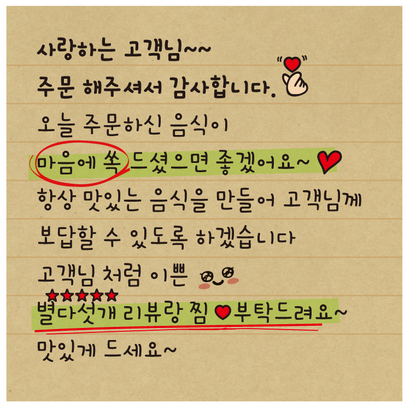 사랑하는 고객님~~
주문 해주셔서 감사합니다.
오늘 주문하신 음식이
마음에 쏙 드셨으면 좋겠어요~
항상 맛있는 음식을 만들어 고객님께
보답할 수 있도록 하겠습니다
고객님 처럼 이쁜
별다섯개 리뷰랑 찜♥부탁드려요~
맛있게 드세요~